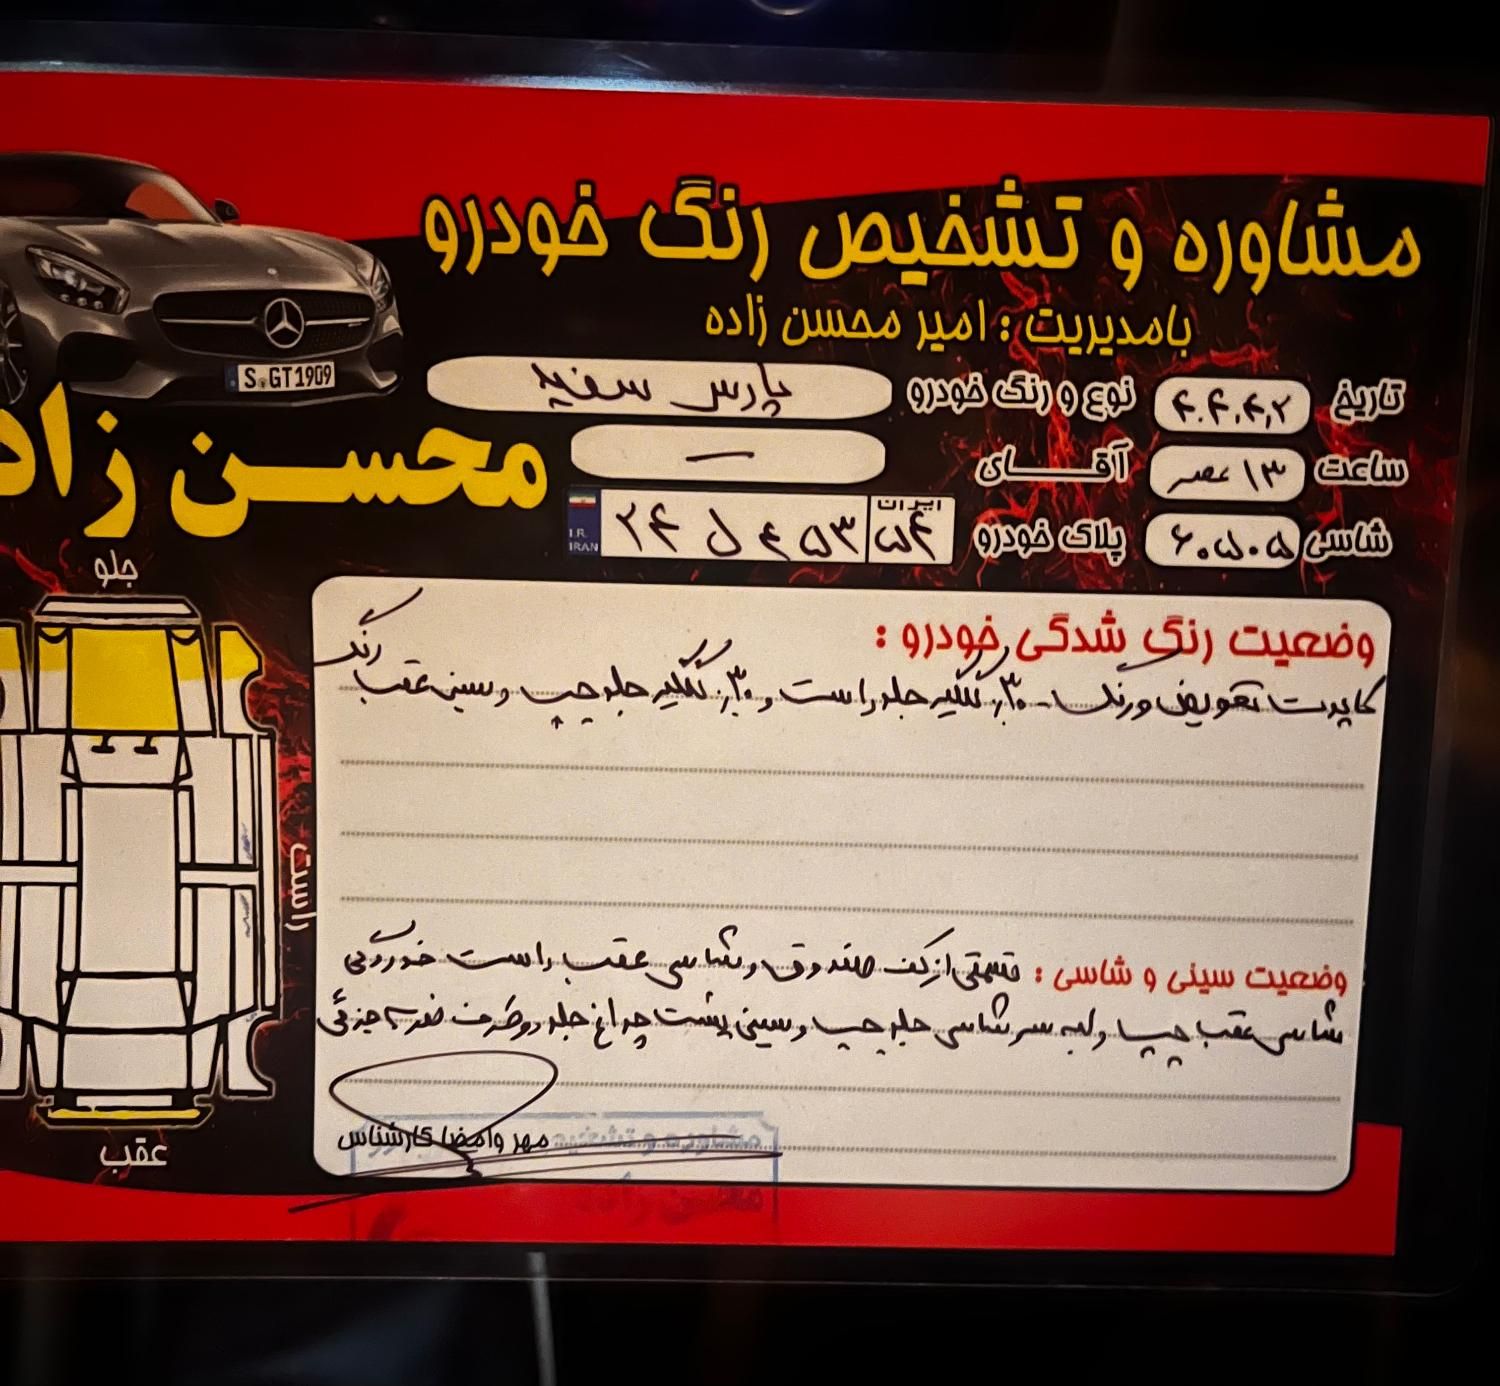 مشاوره و تشخیص رنگ خودرو
بامدیریت : امیر محسن زاده
S GT1909
محسن زاد
تاریخ ۴.۴.۴,۲ نوع و رنگ خودرو پارس سفید
ساعت ۱۳ عصر آقـــای —
شاسی ۶۰۵۰۵ پلاک خودرو ایران ۵۴ ۲۴ ل ۴۵۳ I.R. IRAN
جلو
راست
عقب
وضعیت رنگ شدگی خودرو :
کاپوت تعویض ورنگ - ۳۰٪ گلگیر جلو راست و ۳۰٪ گلگیر جلو چپ و سینی عقب رنگ
وضعیت سینی و شاسی : قسمتی از کف صندوق و شاسی عقب راست خوردگی
شاسی عقب چپ و لبه سر شاسی جلو چپ و سینی پشت چراغ جلو دو طرف ضربه جزئی
مهر وامضا کارشناس
مشاوره و تشخیص
محسن زاده